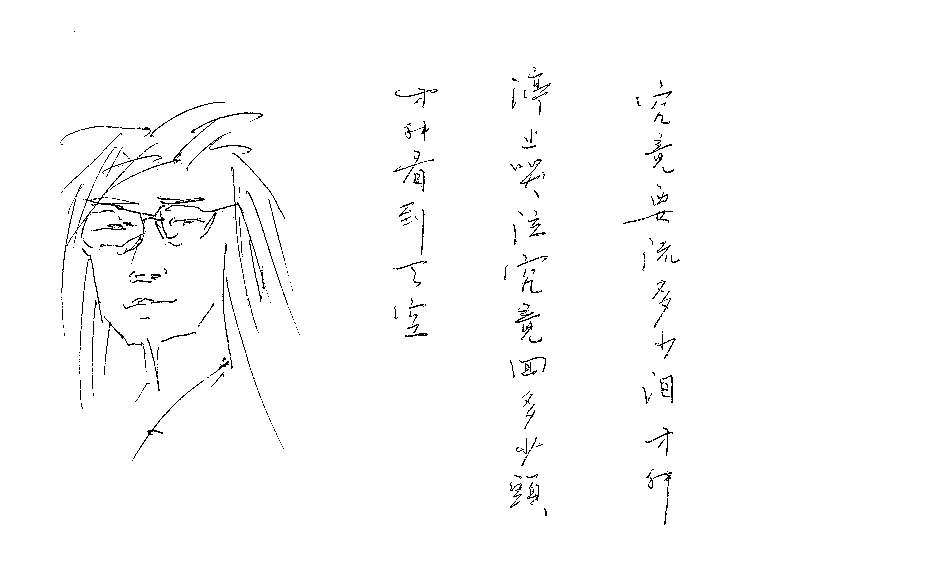 究竟要流多少泪才能
停止哭泣究竟回多少頭
才能看到天空